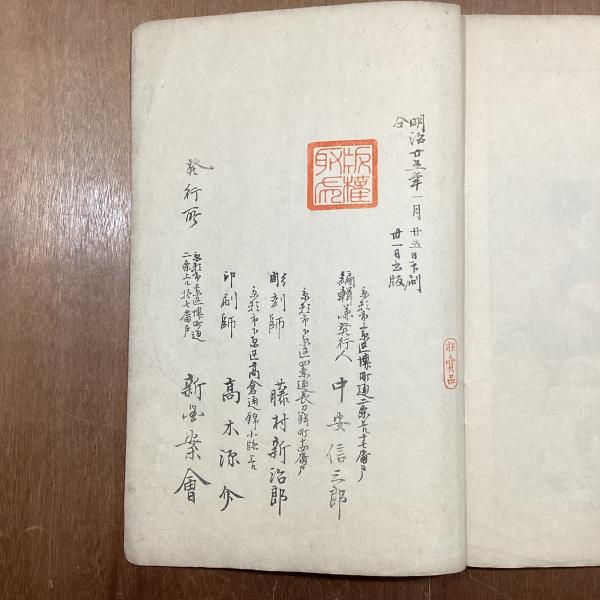 明治廿五年一月廿五日印刷
仝 廿一日出版
版權
取
非賣品
京都市上京區堺町通二条上ル十七番戸
編輯兼発行人 中安信三郎
京都市下京區四条通長刀鉾町十四番戸
彫刻師 藤村新治郎
京都市下京區高倉通錦小路上ル
印刷師 高木源介
発行所
京都市上京區堺町通
二条上ル拾七番戸
新図案會